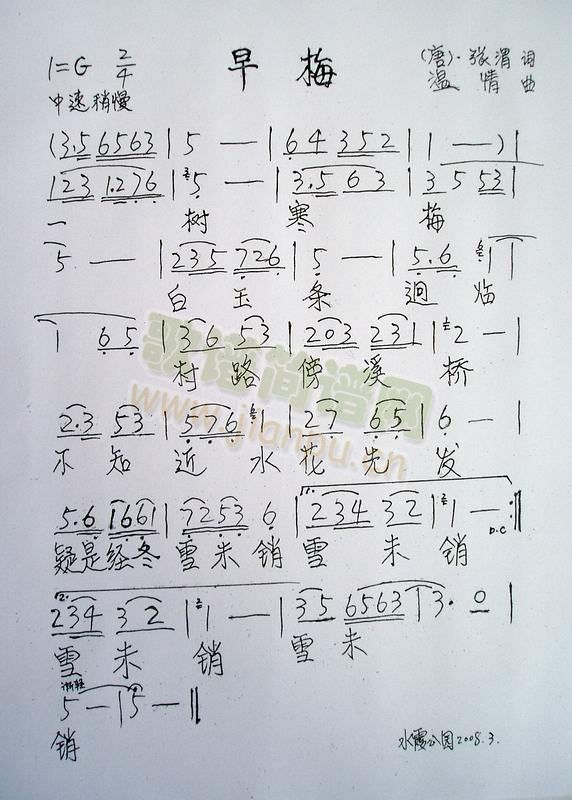 早 梅
1=G 2/4
(唐)·张渭 词
温 情 曲
中速稍慢
(3.5 6563 | 5 — | 64 352 | 1 — ) |
123 1.276 | 5 — | 3.5 63 | 35 53 |
一 树 寒 梅
5 — — | 235 726 | 5 — | 5.6 1 |
白 玉 条 迥 临
1 65 | 36 53 | 203 231 | 2 — |
村 路 傍 溪 桥
2.3 53 | 56 1 | 27 65 | 6 — |
不 知 近 水 花 先 发
5.6 1661 | 7253 6 | 234 32 | 1 — :||
D.C
疑是经冬 雪未销 雪 未 销
234 32 | 1 — | 35 6563 | 3. 0 |
雪 未 销 雪 未
渐轻
5 — | 5 — ||
销
水霞公园2008.3.
歌谱简谱网
www.jianpu.cn